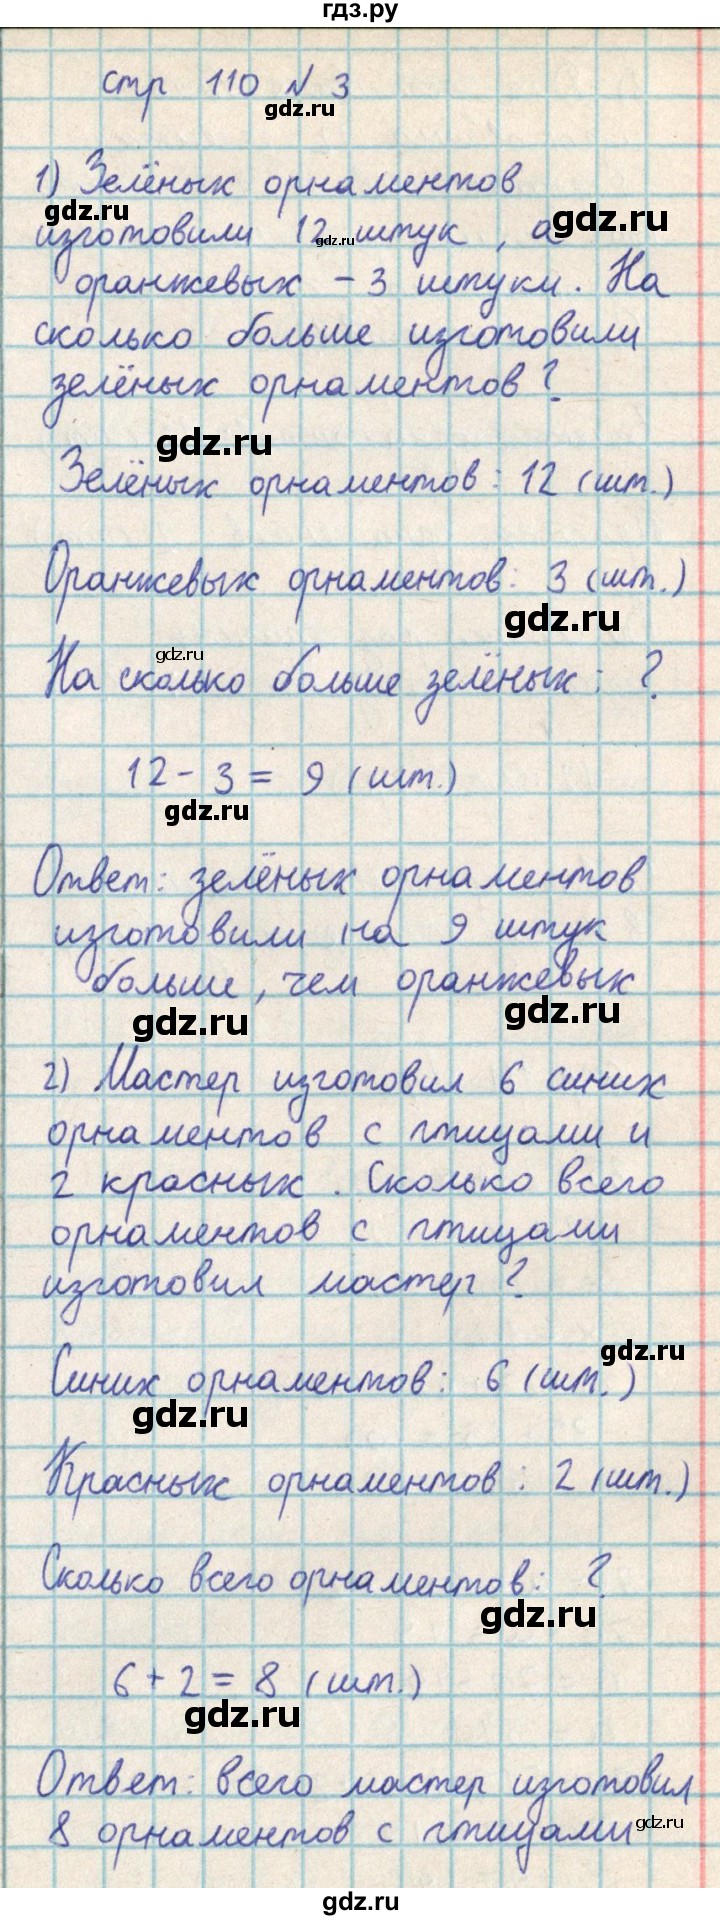 гдз.ру
стр 110 № 3
gdz.ru
1) Зелёных орнаментов
gdz.ru
gdz.ru
изготовили 12 штук, а
gdz.ru
оранжевых - 3 штуки. На
сколько больше изготовили
зелёных орнаментов?
gdz.ru
Зелёных орнаментов: 12 (шт.)
Оранжевых орнаментов: 3 (шт.)
gdz.ru
gdz.ru
На сколько больше зелёных: ?
12 - 3 = 9 (шт.)
gdz.ru
Ответ: зелёных орнаментов
изготовили на 9 штук
больше, чем оранжевых
gdz.ru
gdz.ru
2) Мастер изготовил 6 синих
орнаментов с птицами и
2 красных. Сколько всего
орнаментов с птицами
изготовил мастер?
gdz.ru
Синих орнаментов: 6 (шт.)
gdz.ru
Красных орнаментов: 2 (шт.)
Сколько всего орнаментов: ?
gdz.ru
6 + 2 = 8 (шт.)
gdz.ru
Ответ: всего мастер изготовил
8 орнаментов с птицами
gdz.ru
gdz.ru